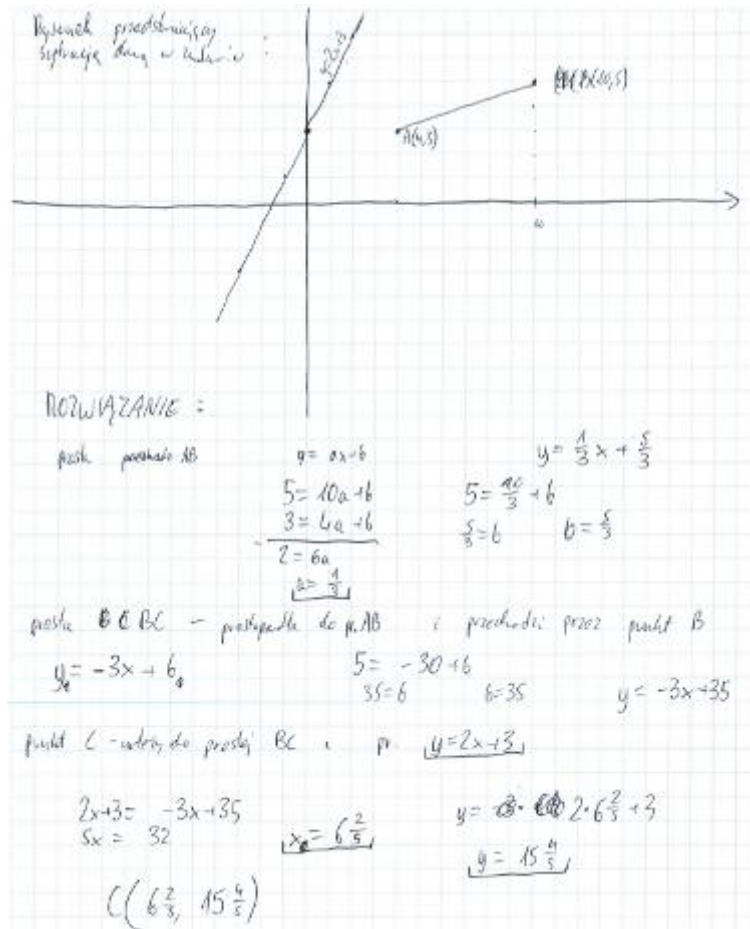 Rysunek przedstawiający
sytuację daną w zadaniu :
y=2x+3
B(10,5)
A(4,3)
10
ROZWIĄZANIE :
prosta AB
y = ax+b
5 = 10a+b
3 = 4a+b
2 = 6a
a = 1/3
y = 1/3 x + 5/3
5 = 10/3 + b
5/3 = b b = 5/3
prosta BC – prostopadła do pr. AB i przechodzi przez punkt B
y = -3x + b
5 = -30+b
35=b b=35 y = -3x+35
punkt C - należy do prostej BC i pr. y=2x+3
2x+3 = -3x+35
5x = 32
x = 6 2/5
y = 2·6 2/5 +3
y = 15 4/5
C(6 2/5, 15 4/5)